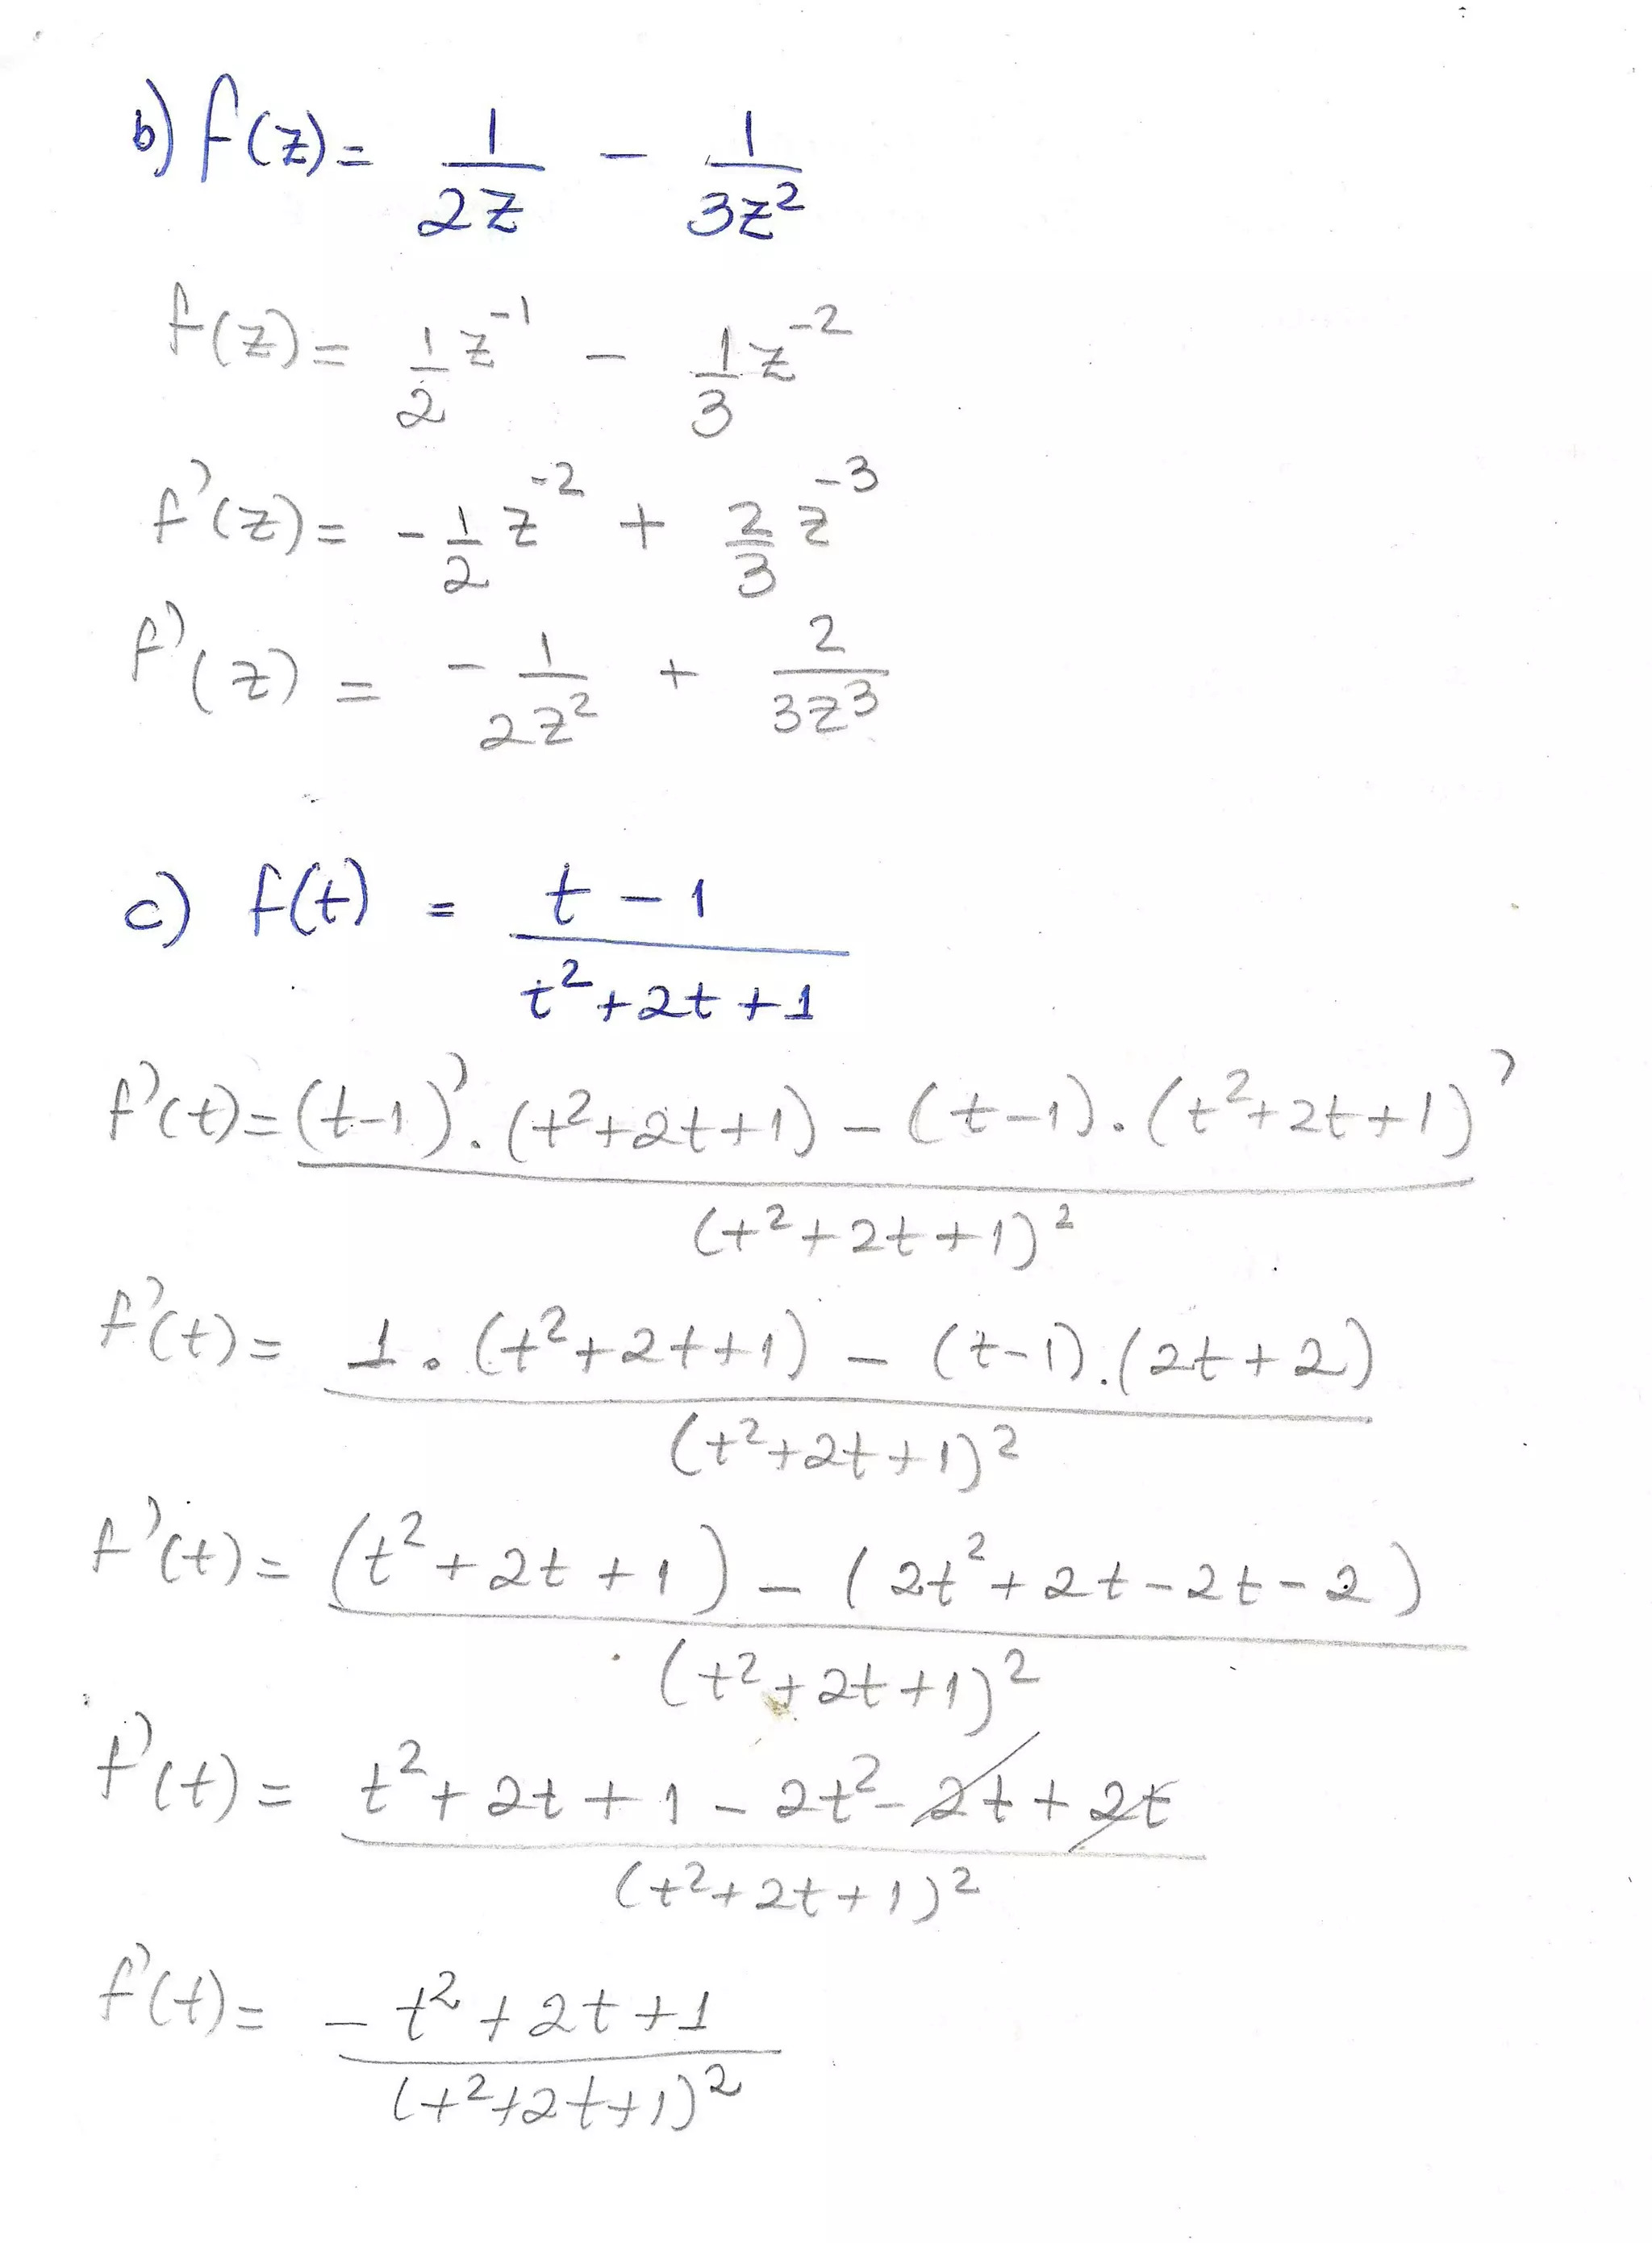 b) f(z) = 1/2z - 1/3z²
f(z) = 1/2 z⁻¹ - 1/3 z⁻²
f'(z) = - 1/2 z⁻² + 2/3 z⁻³
f'(z) = - 1/2z² + 2/3z³
c) f(t) = t - 1 / t² + 2t + 1
f'(t) = (t-1)' . (t² + 2t + 1) - (t-1) . (t² + 2t + 1)' / (t² + 2t + 1)²
f'(t) = 1 . (t² + 2t + 1) - (t-1) . (2t + 2) / (t² + 2t + 1)²
f'(t) = (t² + 2t + 1) - (2t² + 2t - 2t - 2) / (t² + 2t + 1)²
f'(t) = t² + 2t + 1 - 2t² - 2t + 2t / (t² + 2t + 1)²
f'(t) = - t² + 2t + 1 / (t² + 2t + 1)²